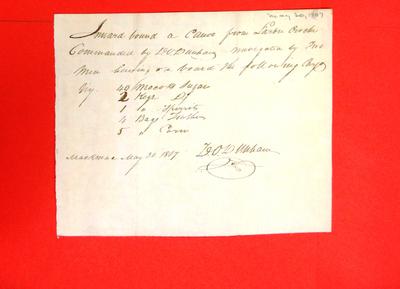 May 20, 1807
Inward bound a Canoe from Larbre Croche
Commanded by D. O. Dunham navigated by Two
Men having on board the following Cargo
Viz 49 Mococks Sugar
2 Kegs Do
1 " Spirits
4 Bags Feathers
5 " Corn
Mackinac May 20 1807 D. O. Dunham